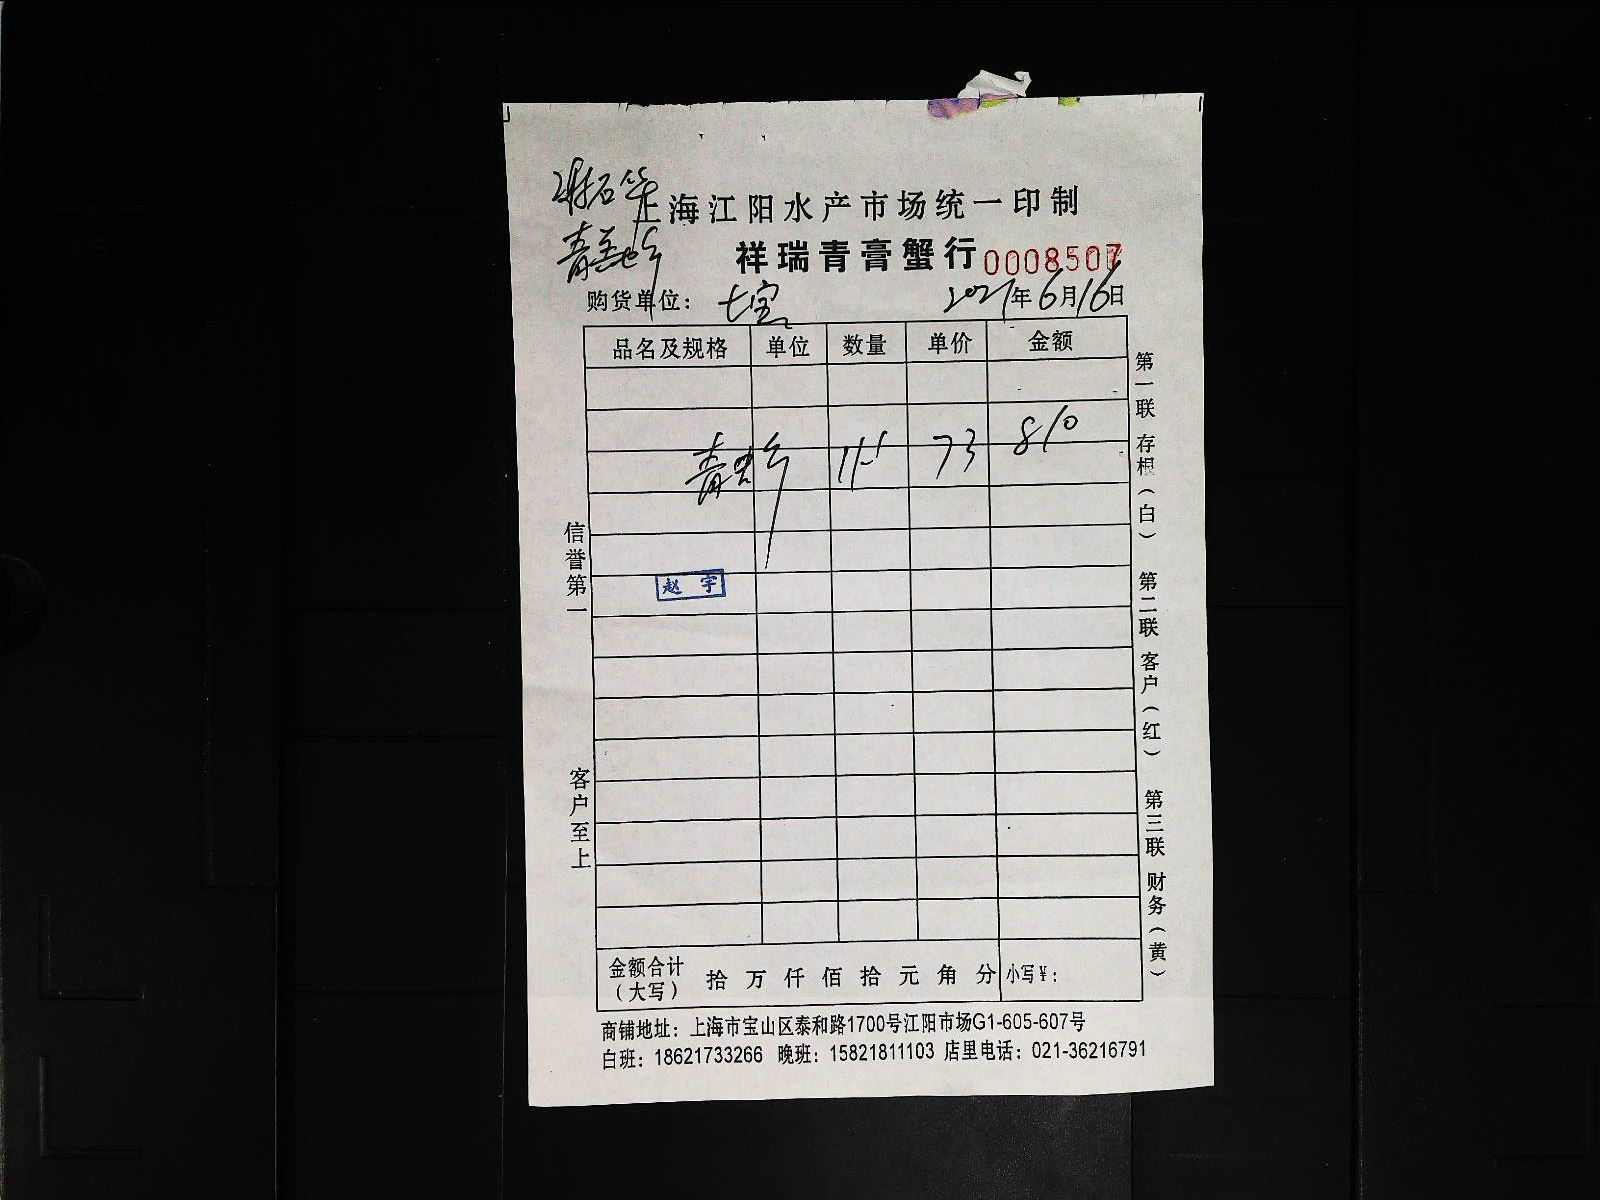 上海江阳水产市场统一印制
祥瑞青膏蟹行 0008507
购货单位: 七宝 2021年6月16日
品名及规格 单位 数量 单价 金额
青 11.1 73 810
赵宇
信誉第一
客户至上
第一联 存根(白) 第二联 客户(红) 第三联 财务(黄)
金额合计 拾 万 仟 佰 拾 元 角 分 小写¥:
(大写)
商铺地址: 上海市宝山区泰和路1700号江阳市场G1-605-607号
白班: 18621733266 晚班: 15821811103 店里电话: 021-36216791